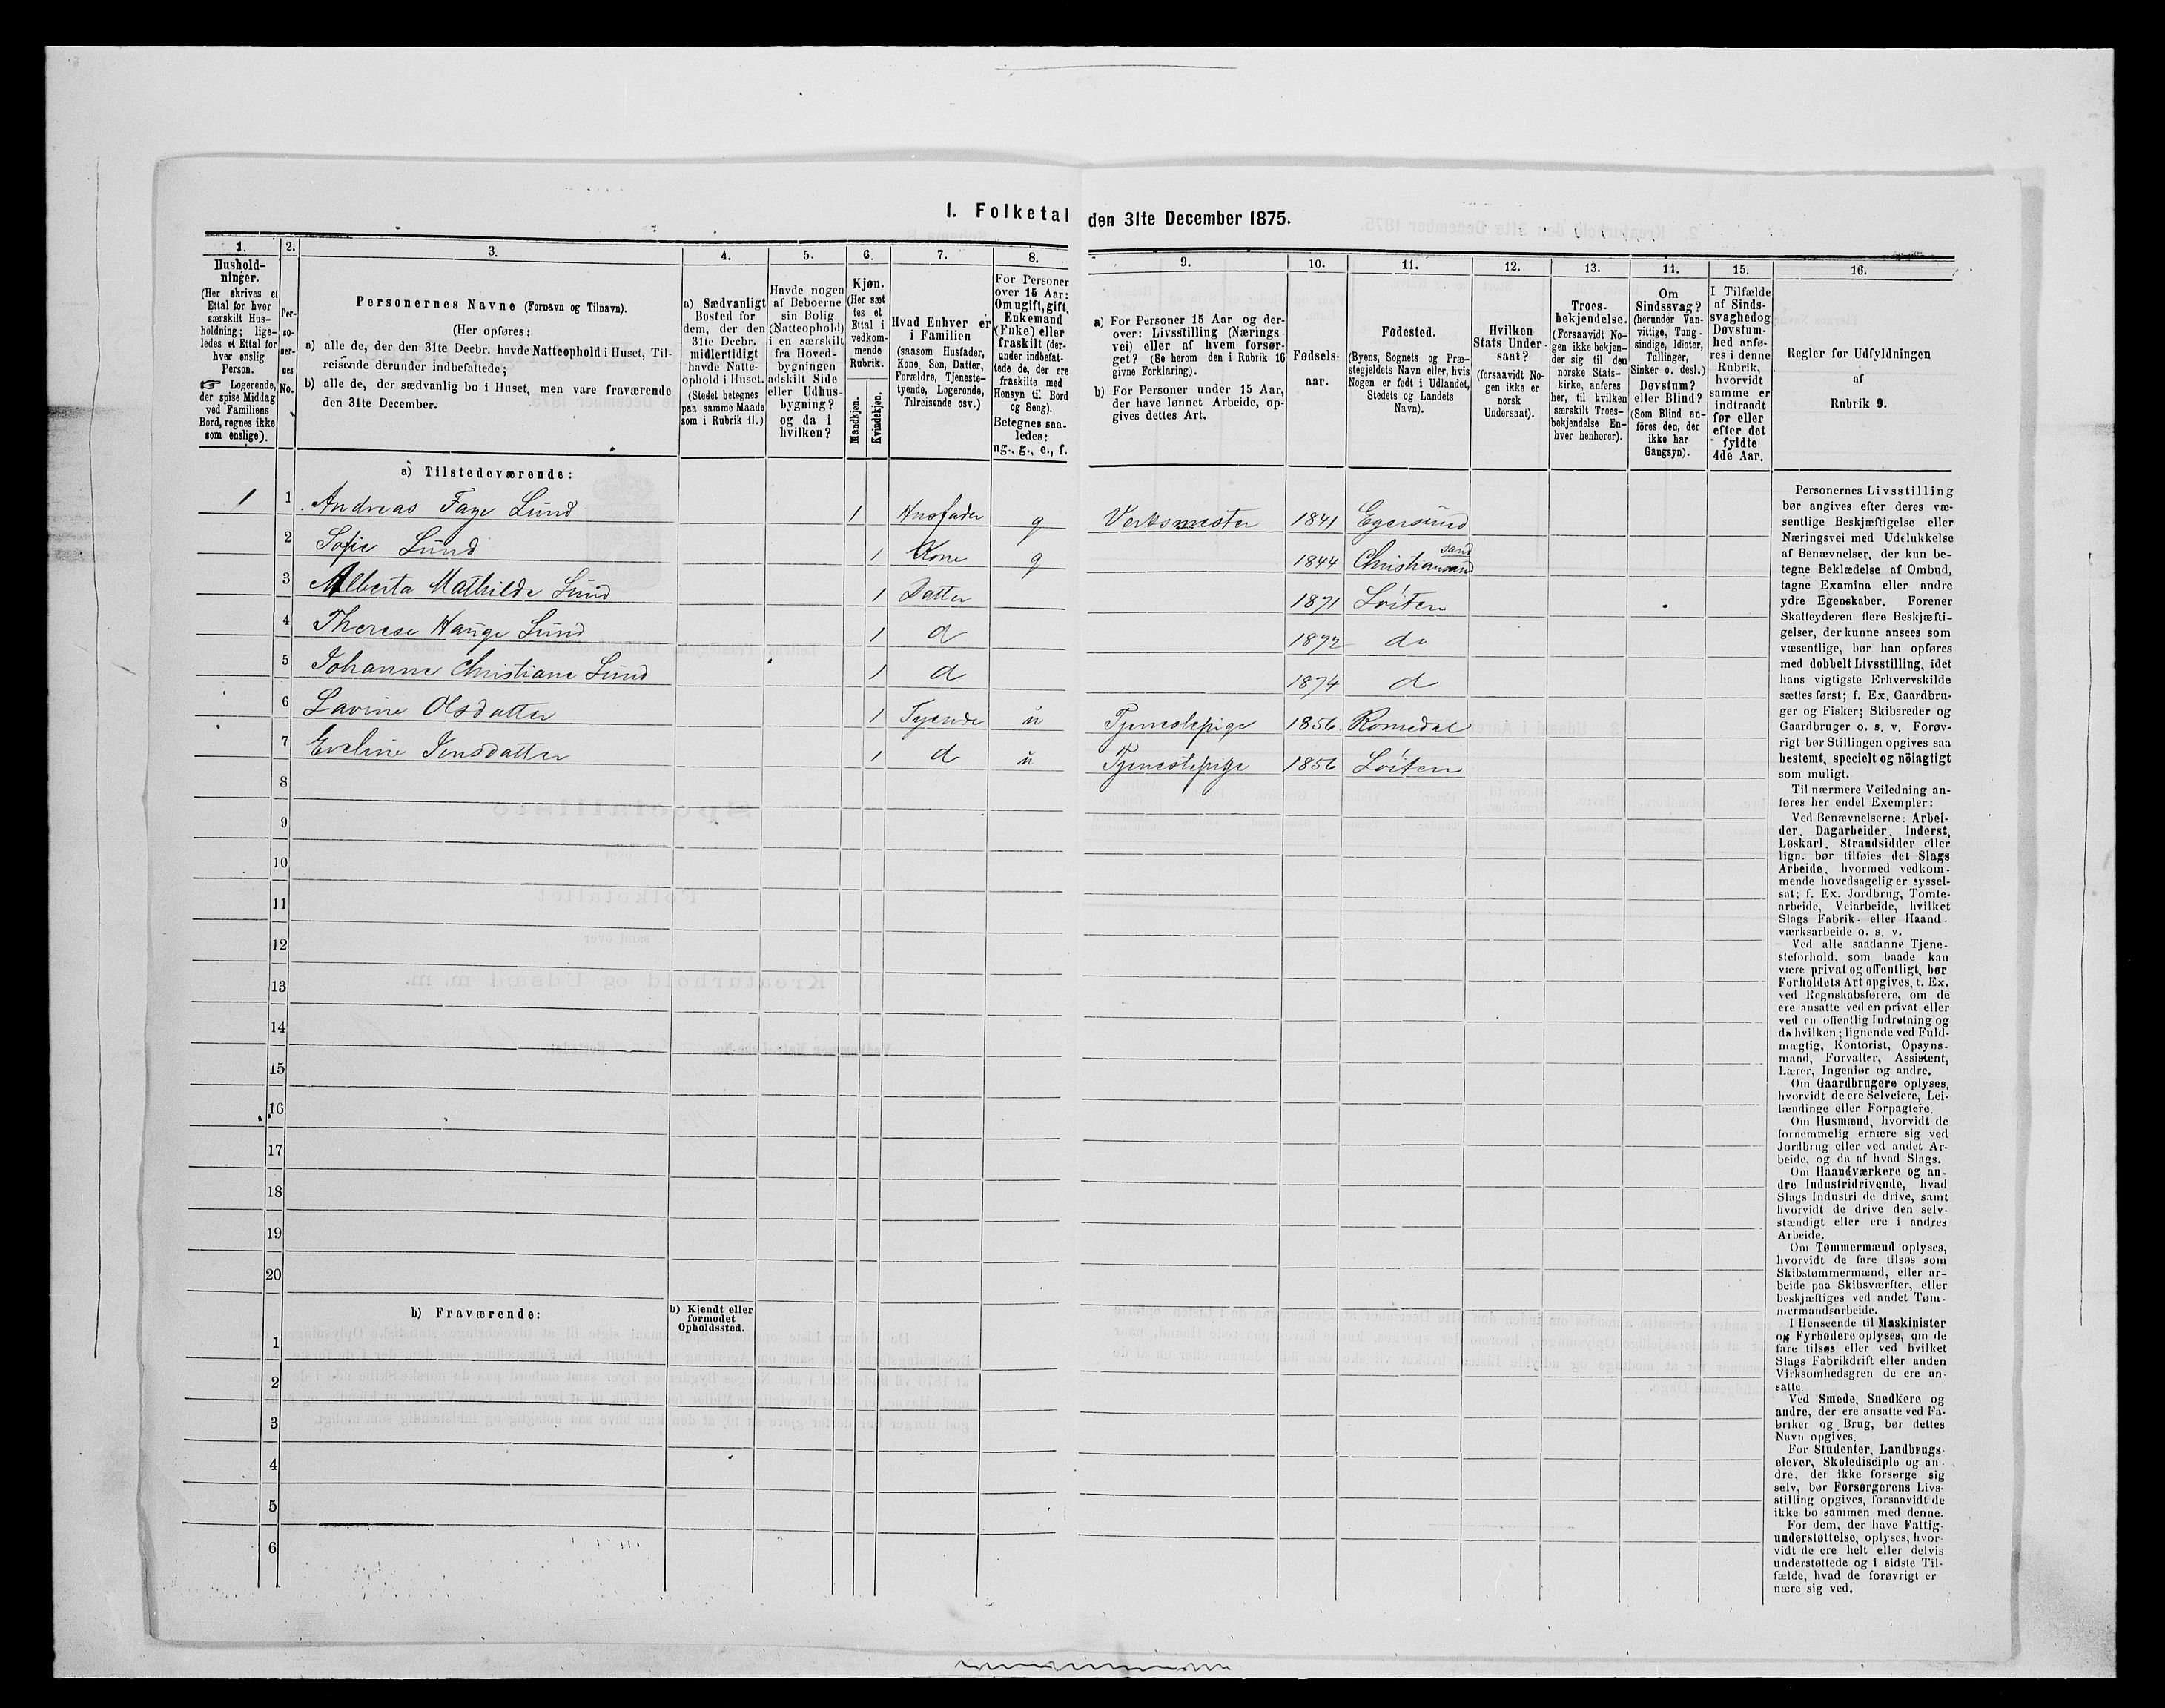 I. Folketal den 31te December 1875.
1.
Hushold-
ninger.
(Her skrives et
Ettal for hver
særskilt Hus-
holdning; lige-
ledes et Ettal for
hver enslig
Person.
☞ Logerende,
der spise Middag
ved Familiens
Bord, regnes ikke
som enslige).
2.
Per-
so-
ner-
nes
No.
3.
Personernes Navne (Fornavn og Tilnavn).
(Her opføres:
a) alle de, der den 31te Decbr. havde Natteophold i Huset, Til-
reisende derunder indbefattede;
b) alle de, der sædvanlig bo i Huset, men vare fraværende
den 31te December.
4.
a) Sædvanligt
Bosted for
dem, der den
31te Decbr.
midlertidigt
havde Natte-
ophold i Huset.
(Stedet betegnes
paa samme Maade
som i Rubrik 11.)
5.
Havde nogen
af Beboerne
sin Bolig
(Natteophold)
i en særskilt
fra Hoved-
bygningen
adskilt Side
eller Udhus-
bygning?
og da i
hvilken?
6.
Kjøn.
(Her sæt
tes et
Ettal i
vedkom-
mende
Rubrik.
Mandkjøn.
Kvindekjøn.
7.
Hvad Enhver er
i Familien
(saasom Husfader,
Kone, Søn, Datter,
Forældre, Tjeneste-
tyende, Logerende,
Tilreisende osv.)
8.
For Personer
over 15 Aar:
Om ugift, gift,
Enkemand
(Enke) eller
fraskilt (der-
under indbefat-
tede de, der ere
fraskilte med
Hensyn til Bord
og Seng).
Betegnes saa-
ledes:
ug., g., e., f.
9.
a) For Personer 15 Aar og der-
over: Livsstilling (Nærings
vei) eller af hvem forsør-
get? (Se herom den i Rubrik 16
givne Forklaring).
b) For Personer under 15 Aar,
der have lønnet Arbeide, op-
gives dettes Art.
10.
Fødsels-
aar.
11.
Fødested.
(Byens, Sognets og Præ-
stegjeldets Navn eller, hvis
Nogen er født i Udlandet,
Stedets og Landets
Navn).
12.
Hvilken
Stats Under-
saat?
(forsaavidt No-
gen ikke er
norsk
Undersaat).
13.
Troes-
bekjendelse.
(Forsaavidt No-
gen ikke bekjen-
der sig til den
norske Stats-
kirke, anføres
her, til hvilken
særskilt Troes-
bekjendelse En-
hver henhører).
11.
Om
Sindssvag?
(herunder Van-
vittige, Tung-
sindige, Idioter,
Tullinger,
Sinker o. desl.)
Døvstum?
eller Blind?
(Som Blind an-
föres den, der
ikke har
Gangsyn).
15.
I Tilfælde
af Sinds-
svaghed og
Døvstum-
hed anfø-
res i denne
Rubrik,
hvorvidt
samme er
indtraadt
før eller
efter det
fyldte
4de Aar.
16.
Regler for Udfyldningen
af
Rubrik 9.
a) Tilstedeværende:
1 1 Andreas Faye Lund 1 Husfader g Verksmester 1841 Egersund
2 Sofie Lund 1 Kone g 1844 Christiansand sand
3 Alberta Mathilde Lund 1 Datter 1871 Løiten
4 Therese Hauge Lund 1 d 1872 do
5 Johanne Christiane Lund 1 d 1874 d
6 Lavine Olsdatter 1 Tyende u Tjenestepige 1856 Romedal
7 Eveline Jensdatter 1 d u Tjenestepige 1856 Løiten
8
9
10
11
12
13
14
15
16
17
18
19
20
b) Fraværende:
b) Kjendt eller
formodet
Opholdssted.
1
2
3
4
5
6
Personernes Livsstilling
bør angives efter deres væ-
sentlige Beskjæftigelse eller
Næringsvei med Udelukkelse
af Benævnelser, der kun be-
tegne Beklædelse af Ombud,
tagne Examina eller andre
ydre Egenskaber. Forener
Skatteyderen flere Beskjæfti-
gelser, der kunne ansees som
væsentlige, bør han opføres
med dobbelt Livsstilling, idet
hans vigtigste Erhvervskilde
sættes først; f. Ex. Gaardbru-
ger og Fisker; Skibsreder og
Gaardbruger o. s. v. Forøv-
rigt bør Stillingen opgives saa
bestemt, specielt og nöiagtigt
som muligt.
Til nærmere Veiledning an-
føres her endel Exempler:
Ved Benævnelserne: Arbei-
der, Dagarbeider, Inderst,
Løskarl, Strandsidder eller
lign. bør tilføies det Slags
Arbeide, hvormed vedkom-
mende hovedsagelig er syssel-
sat; f. Ex. Jordbrug, Tomte-
arbeide, Veiarbeide, hvilket
Slags Fabrik- eller Haand-
værksarbeide o. s. v.
Ved alle saadanne Tjene-
steforhold, som baade kan
være privat og offentligt, bør
Forholdets Art opgives, f. Ex.
ved Regnskabsførere, om de
ere ansatte ved en privat eller
ved en offentlig Indretning og
da hvilken; lignende ved Fuld-
mægtig, Kontorist, Opsyns-
mand, Forvalter, Assistent,
Lærer, Ingeniør og andre.
Om Gaardbrugere oplyses,
hvorvidt de ere Selveiere, Lei-
lændinge eller Forpagtere.
Om Husmænd, hvorvidt de
fornemmelig ernære sig ved
Jordbrug eller ved andet Ar-
beide, og da af hvad Slags.
Om Haandværkere og an-
dre Industridrivende, hvad
Slags Industri de drive, samt
hvorvidt de drive den selv-
stændigt eller ere i andres
Arbeide.
Om Tømmermænd oplyses,
hvorvidt de fare tilsøs som
Skibstømmermænd, eller ar-
beide paa Skibsværfter, eller
beskjæftiges ved andet Tøm-
mermandsarbeide.
I Henseende til Maskinister
og Fyrbødere oplyses, om de
fare tilsøs eller ved hvilket
Slags Fabrikdrift eller anden
Virksomhedsgren de ere an-
satte.
Ved Smede, Snedkere og
andre, der ere ansatte ved Fa-
briker og Brug, bør dettes
Navn opgives.
For Studenter, Landbrugs-
elever, Skoledisciple og an-
dre, der ikke forsørge sig
selv, bør Forsørgerens Livs-
stilling opgives, forsaavidt de
ikke bo sammen med denne.
For dem, der have Fattig-
understøttelse, oplyses, hvor-
vidt de ere helt eller delvis
understøttede og i sidste Til-
fælde, hvad de forøvrigt er
nære sig ved.